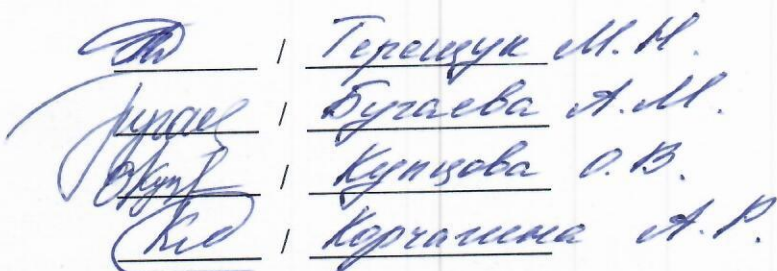 / Терещук М.Н.
/ Бугаева А.М.
/ Купцова О.В.
/ Корчагина А.Р.